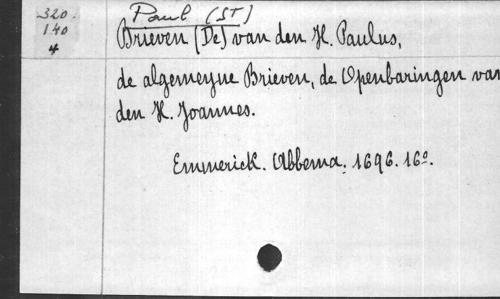 320.
140
4
Paul (ST)
Brieven (De) van den H. Paulus,
de algemeyne Brieven, de Openbaringen van
den H. Joannes.
Emmerick. Abbema. 1696. 16º.